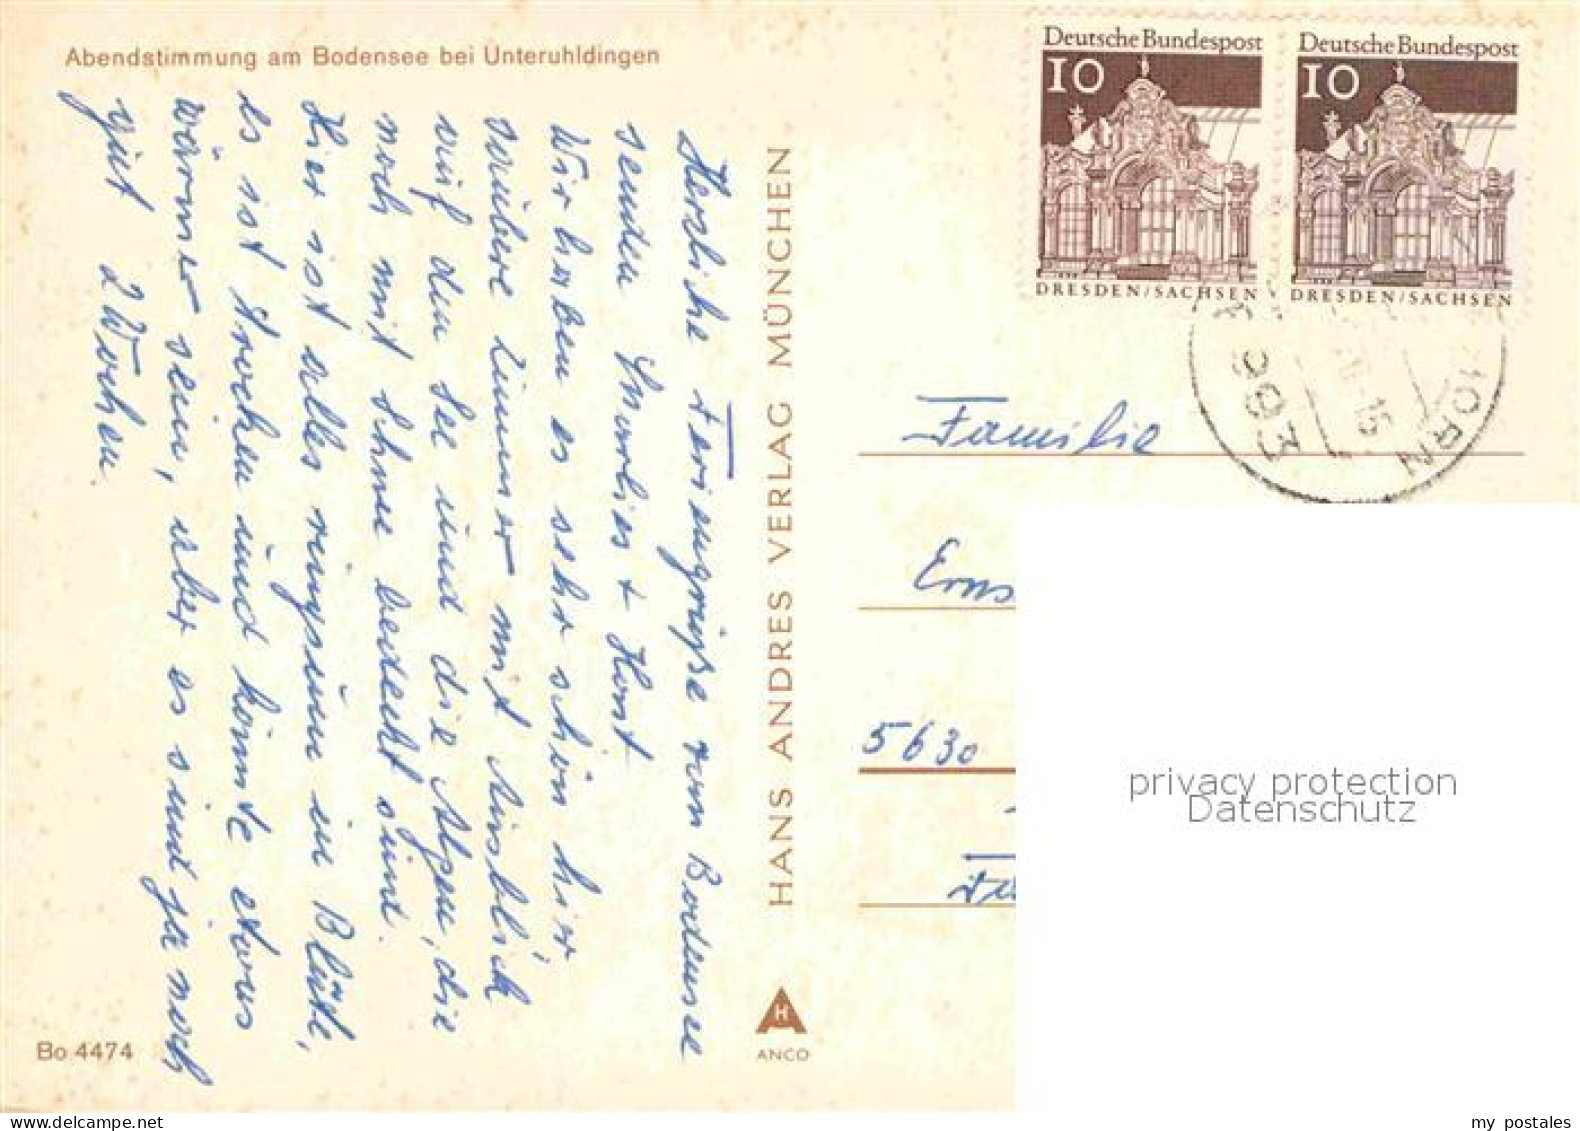 Abendstimmung am Bodensee bei Unteruhldingen
Herzliche Feriengrüße vom Bodensee
senden Marlies + Horst
Wir haben es sehr schön hier,
saubere Zimmer mit Ausblick
auf den See und die Alpen, die
noch mit Schnee bedeckt sind.
Hier ist alles ringsum in Blüte,
es ist trocken und könnte etwas
wärmer sein, aber es sind ja noch
gut 2 Wochen.
Bo 4474
HANS ANDRES VERLAG MÜNCHEN
H
ANCO
Deutsche Bundespost
10
DRESDEN/SACHSEN
Deutsche Bundespost
10
DRESDEN/SACHSEN
-15
HORN
Familie
Erns
5630
privacy protection
Datenschutz
my postales